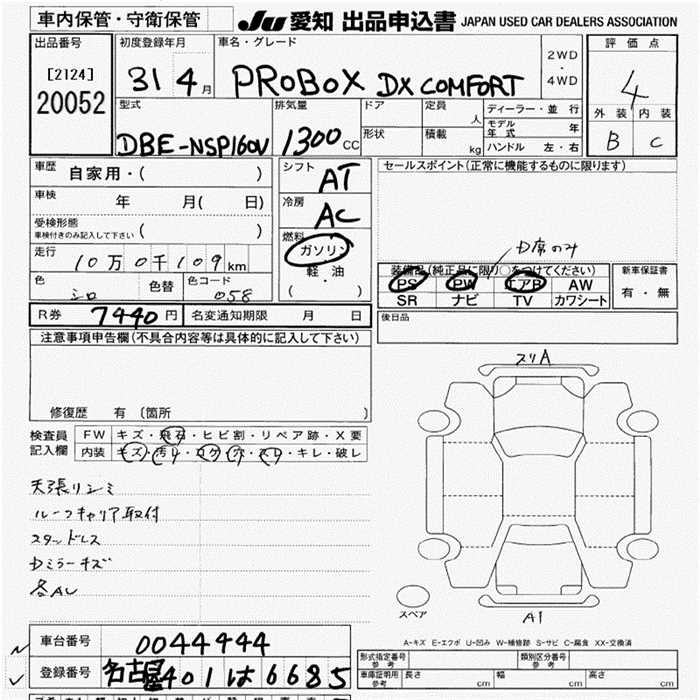 車内保管・守衛保管
JU 愛知 出品申込書 JAPAN USED CAR DEALERS ASSOCIATION
出品番号
[2124]
20052
初度登録年月
31 4月
車名・グレード
PROBOX DX COMFORT
2WD
・
4WD
評価点
4
外装 内装
B C
型式
DBE-NSP160V
排気量
1300 CC
ドア
形状
定員
人
積載
kg
ディーラー・並行
モデル年式 年
ハンドル 左・右
車歴 自家用・( )
車検 年 月( 日)
受検形態
車検付きのみ記入して下さい ( )
走行 10万0千109km
色 シロ 色替 色コード 058
シフト AT
冷房 AC
燃料
ガソリン
軽・油
(・)
セールスポイント(正常に機能するものに限ります)
D席のみ
装備品(純正品に限り○をつけてください)
PS PW エアB AW
SR ナビ TV カワシート
新車保証書
有・無
R券 7440円 名変通知期限 月 日
後日品
注意事項申告欄(不具合内容等は具体的に記入して下さい)
修復歴 有 (箇所 )
検査員
記入欄
FW キズ・飛石・ヒビ割・リペア跡・X要
内装 キズ・汚れ・コゲ・穴・スレ・キレ・破レ
天張リシミ
ルーフキャリア取付
スタッドレス
Dミラーキズ
各AU
スリA
スペア
A1
A-キズ E-エクボ U-凹み W-補修跡 S-サビ C-腐食 XX-交換済
車台番号 0044444
登録番号 名古屋 401 は 6685
形式指定番号
参考
類別区分番号
参考
車庫証明用
参考
長さ cm 幅 cm 高さ cm